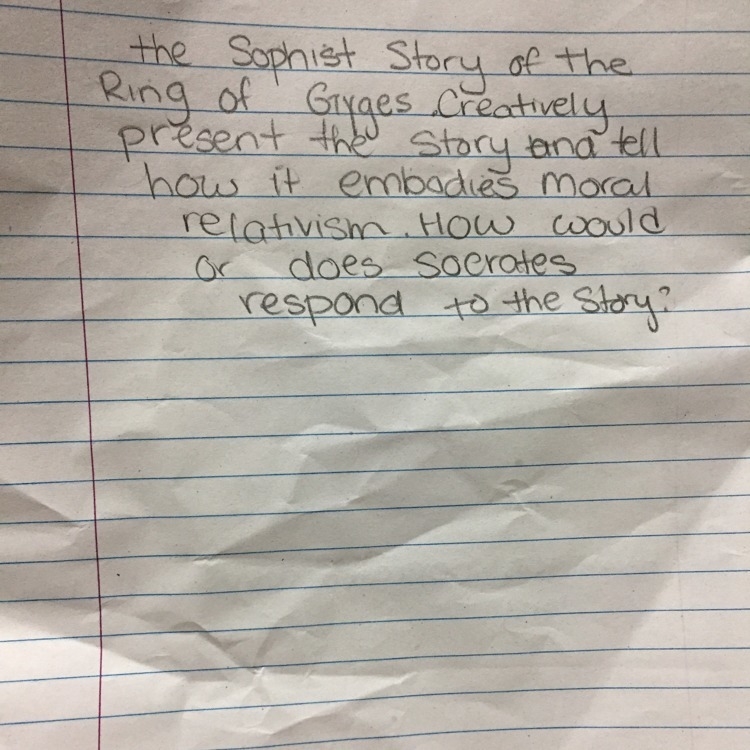 the Sophist Story of the
Ring of Gyges. Creatively
present the story and tell
how it embodies moral
relativism. How would
or does Socrates
respond to the story?